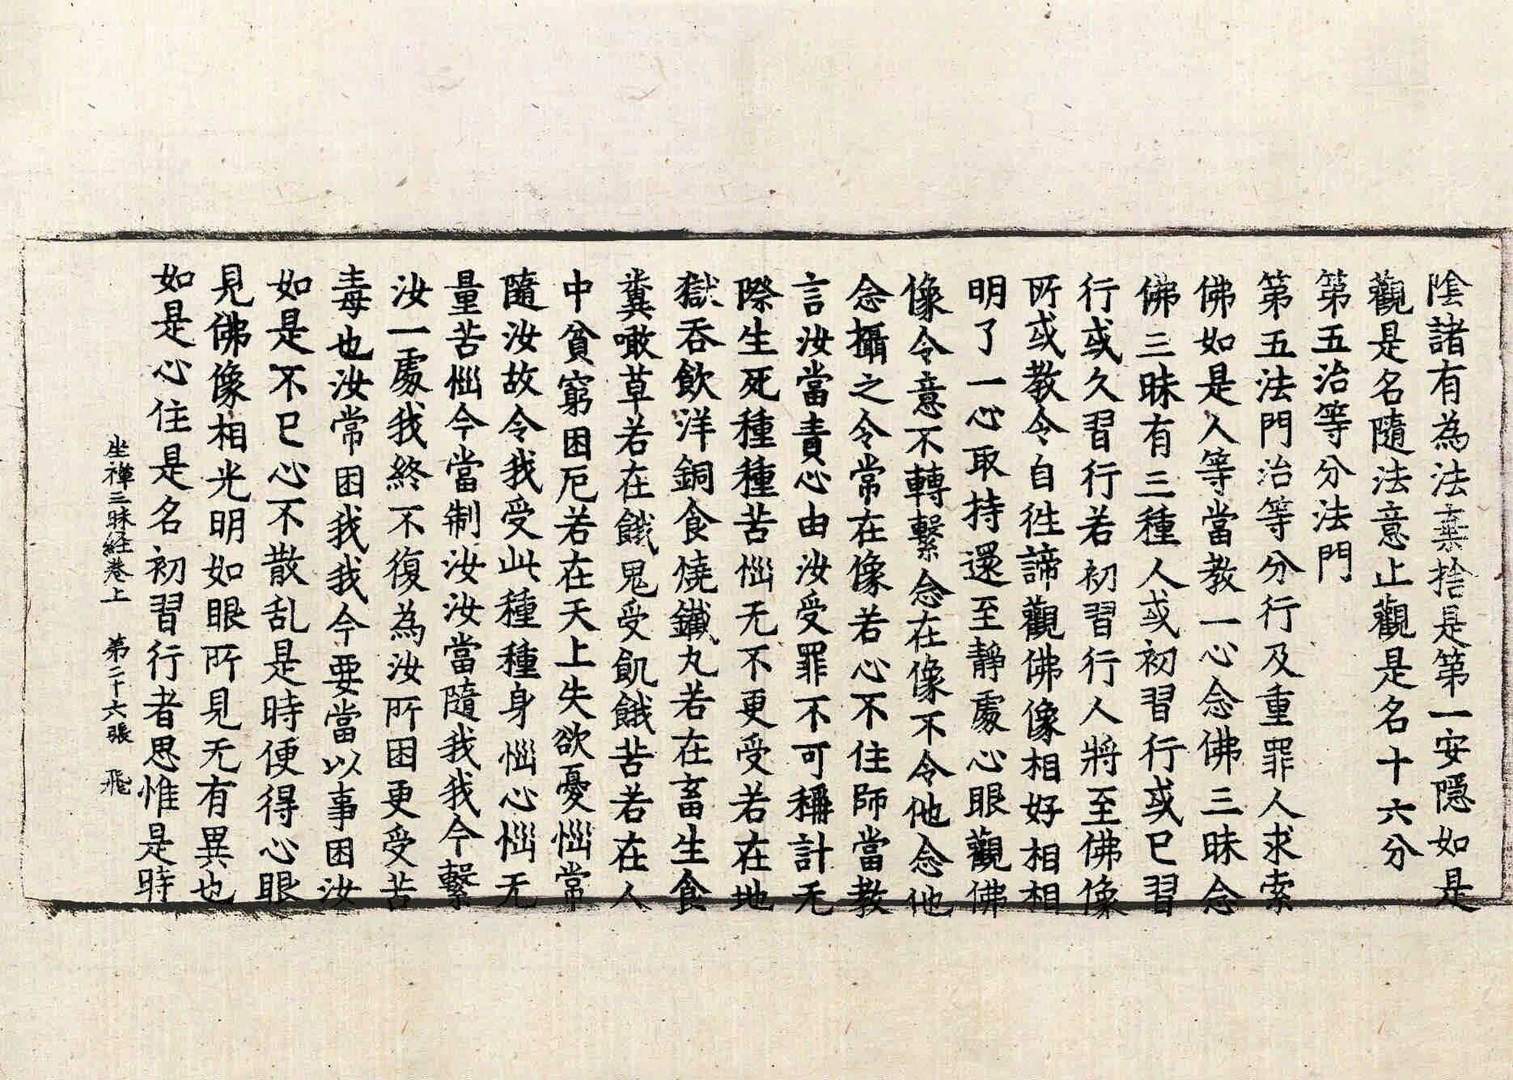 陰諸有為法棄捨是第一安隱如是
觀是名隨法意止觀是名十六分
第五治等分法門
第五法門治等分行及重罪人求索
佛如是人等當教一心念佛三昧念
佛三昧有三種人或初習行或已習
行或久習行若初習行人將至佛像
所或教令自往諦觀佛像相好相相
明了一心取持還至靜處心眼觀佛
像令意不轉繫念在像不令他念他
念攝之令常在像若心不住師當教
言汝當責心由汝受罪不可稱計无
際生死種種苦惱无不更受若在地
獄吞飲洋銅食燒鐵丸若在畜生食
糞噉草若在餓鬼受飢餓苦若在人
中貧窮困厄若在天上失欲憂惱常
隨汝故令我受此種種身惱心惱无
量苦惱今當制汝汝當隨我我今繫
汝一處我終不復為汝所困更受苦
毒也汝常困我我今要當以事困汝
如是不已心不散乱是時便得心眼
見佛像相光明如眼所見无有異也
如是心住是名初習行者思惟是時
坐禪三昧経卷上 第二十六張 飛